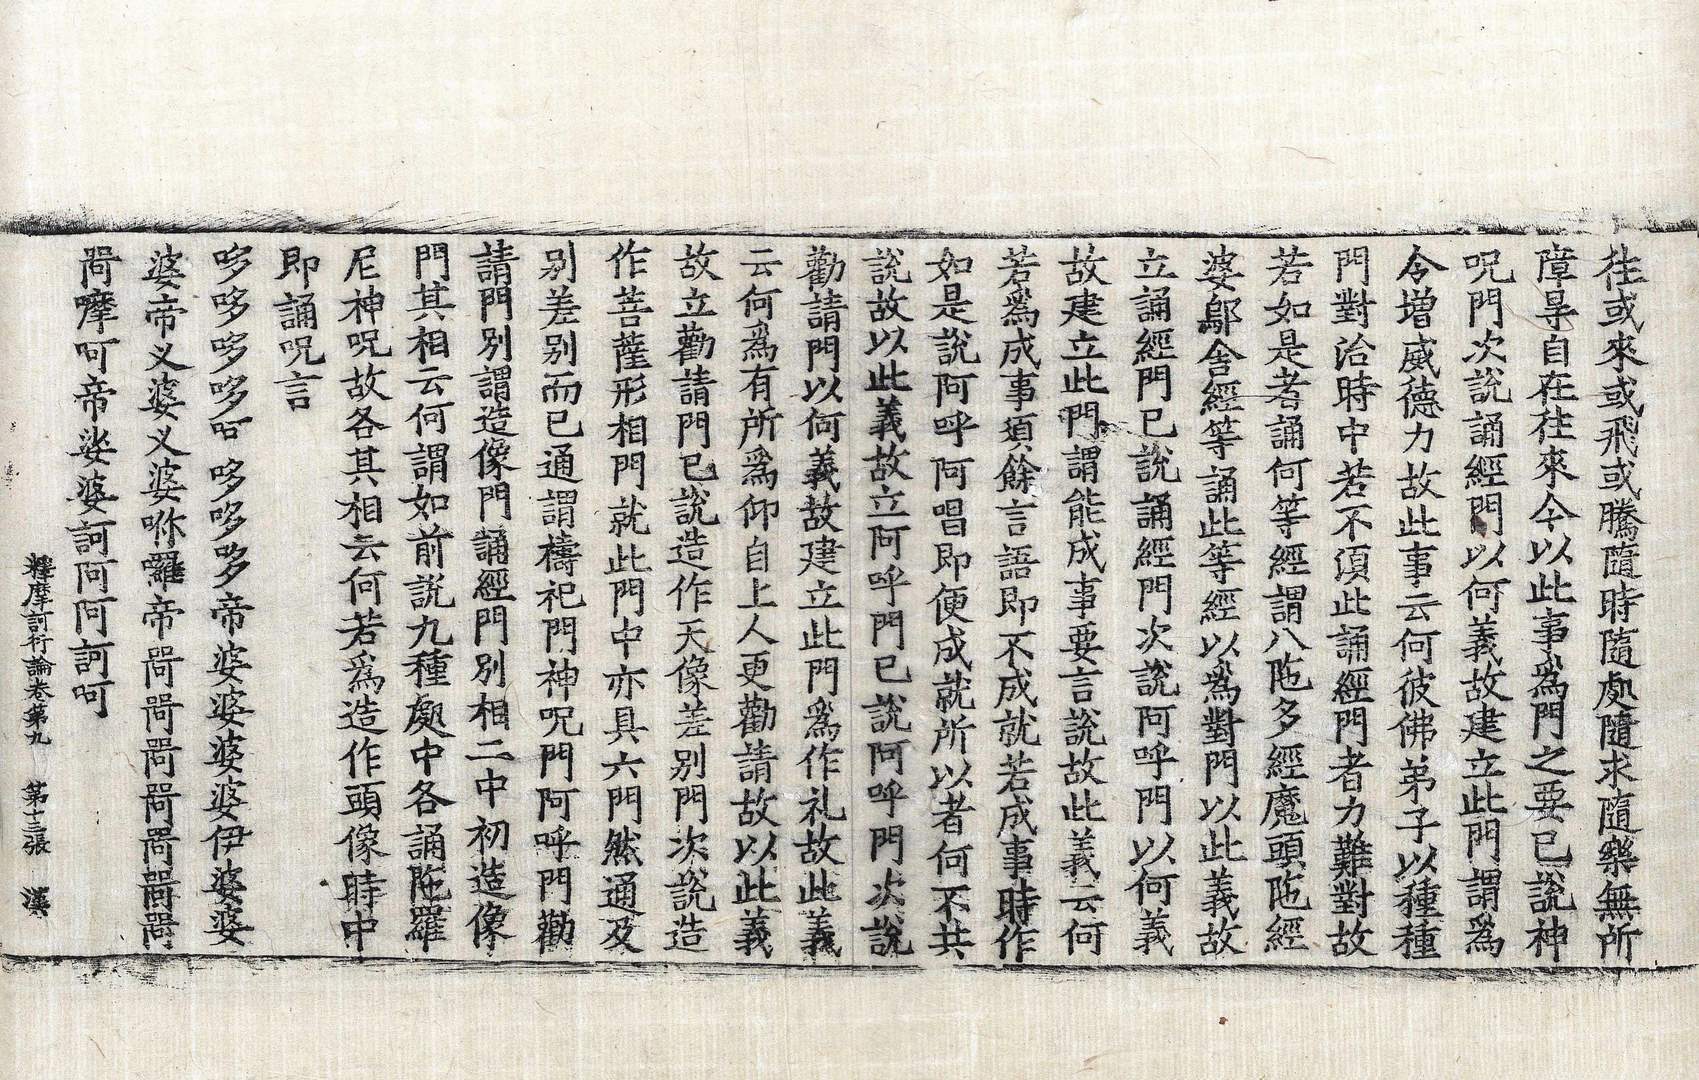 往或來或飛或騰隨時隨處隨求隨樂無所
障㝵自在往來今以此事爲門之要已說神
呪門次說誦經門以何義故建立此門謂爲
令增威德力故此事云何彼佛弟子以種種
門對治時中若不須此誦經門者力難對故
若如是者誦何等經謂八陁多經魔頭陁經
婆鄔舍經等誦此等經以爲對門以此義故
立誦經門已說誦經門次說阿呼門以何義
故建立此門謂能成事要言說故此義云何
若爲成事須餘言語即不成就若成事時作
如是說阿呼阿唱即便成就所以者何不共
說故以此義故立阿呼門已說阿呼門次說
勸請門以何義故建立此門爲作礼故此義
云何爲有所爲仰自上人更勸請故以此義
故立勸請門已說造作天像差別門次說造
作菩薩形相門就此門中亦具六門然通及
別差別而已通謂禱祀門神呪門阿呼門勸
請門別謂造像門誦經門別相二中初造像
門其相云何謂如前說九種處中各誦陁羅
尼神呪故各其相云何若爲造作頭像時中
即誦呪言
哆哆哆哆哆𠯈哆哆哆帝婆婆婆婆伊婆婆
婆帝义婆义婆㖿囉帝㗏㗏㗏㗏㗏㗏㗏
㗏摩呵帝娑婆訶阿阿訶呵
釋摩訶衍論卷第九 第十三張 漢